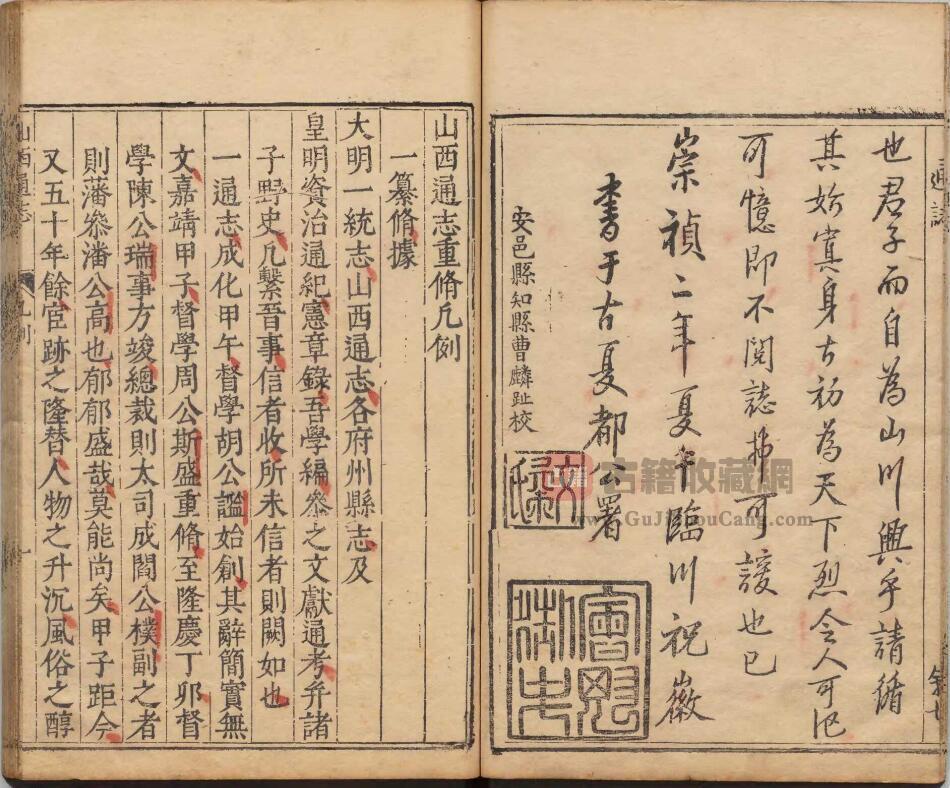 也君子而自為山川興乎請循
其妍寘身古初為天下烈令人可思
可憶即不閱誌

可諼也已
崇禎二年夏午臨川祝徽
書于古夏都公署
安邑縣知縣曹麟趾校
山西通志重脩凡例
一纂脩據
大明一統志山西通志各府州縣志及
皇明資治通紀憲章錄吾學編叅之文獻通考弁諸
子野史凡繫晉事信者收所未信者則闕如也
一通志成化甲午督學胡公謐始創其辭簡實無
文嘉靖甲子督學周公斯盛重脩至隆慶丁卯督
學陳公瑞事方竣總裁則太司成閻公樸副之者
則藩叅潘公高也郁郁盛哉莫能尚矣甲子距今
又五十年餘宦跡之隆替人物之升沉風俗之醇
山西通志
凡例
一
古籍收藏網
www.GuJiShouCang.com